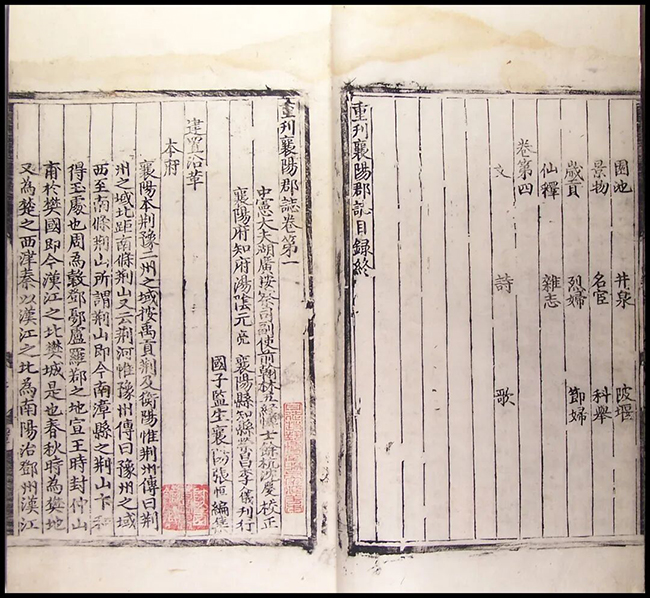 園池 井泉 陂堰
景物 名宦 科舉
歲貢 烈婦 節婦
仙釋 雜志
卷第四
文 詩 歌
重刊襄陽郡誌目録終
重刊襄陽郡誌卷第一
中憲大夫湖廣按察司副使前翰林 校正
襄陽府知府湯陰元亮 襄陽縣知縣 昌李儀刊行
國子監生襄陽張恒編集
建置沿革
本府
襄陽本荆豫二州之域按禹貢荆及衡陽惟荆州傳曰荆
州之域北距南條荆山又云荆河惟豫州傳曰豫州之域
西至南條荆山所謂荆山即今南漳縣之荆山卞和
得玉處也周為穀鄧鄾盧羅鄀之地宣王時封仲山
甫於樊國即今漢江之北樊城是也春秋時為楚地
又為楚之西津秦以漢江之北為南陽治鄧州漢江